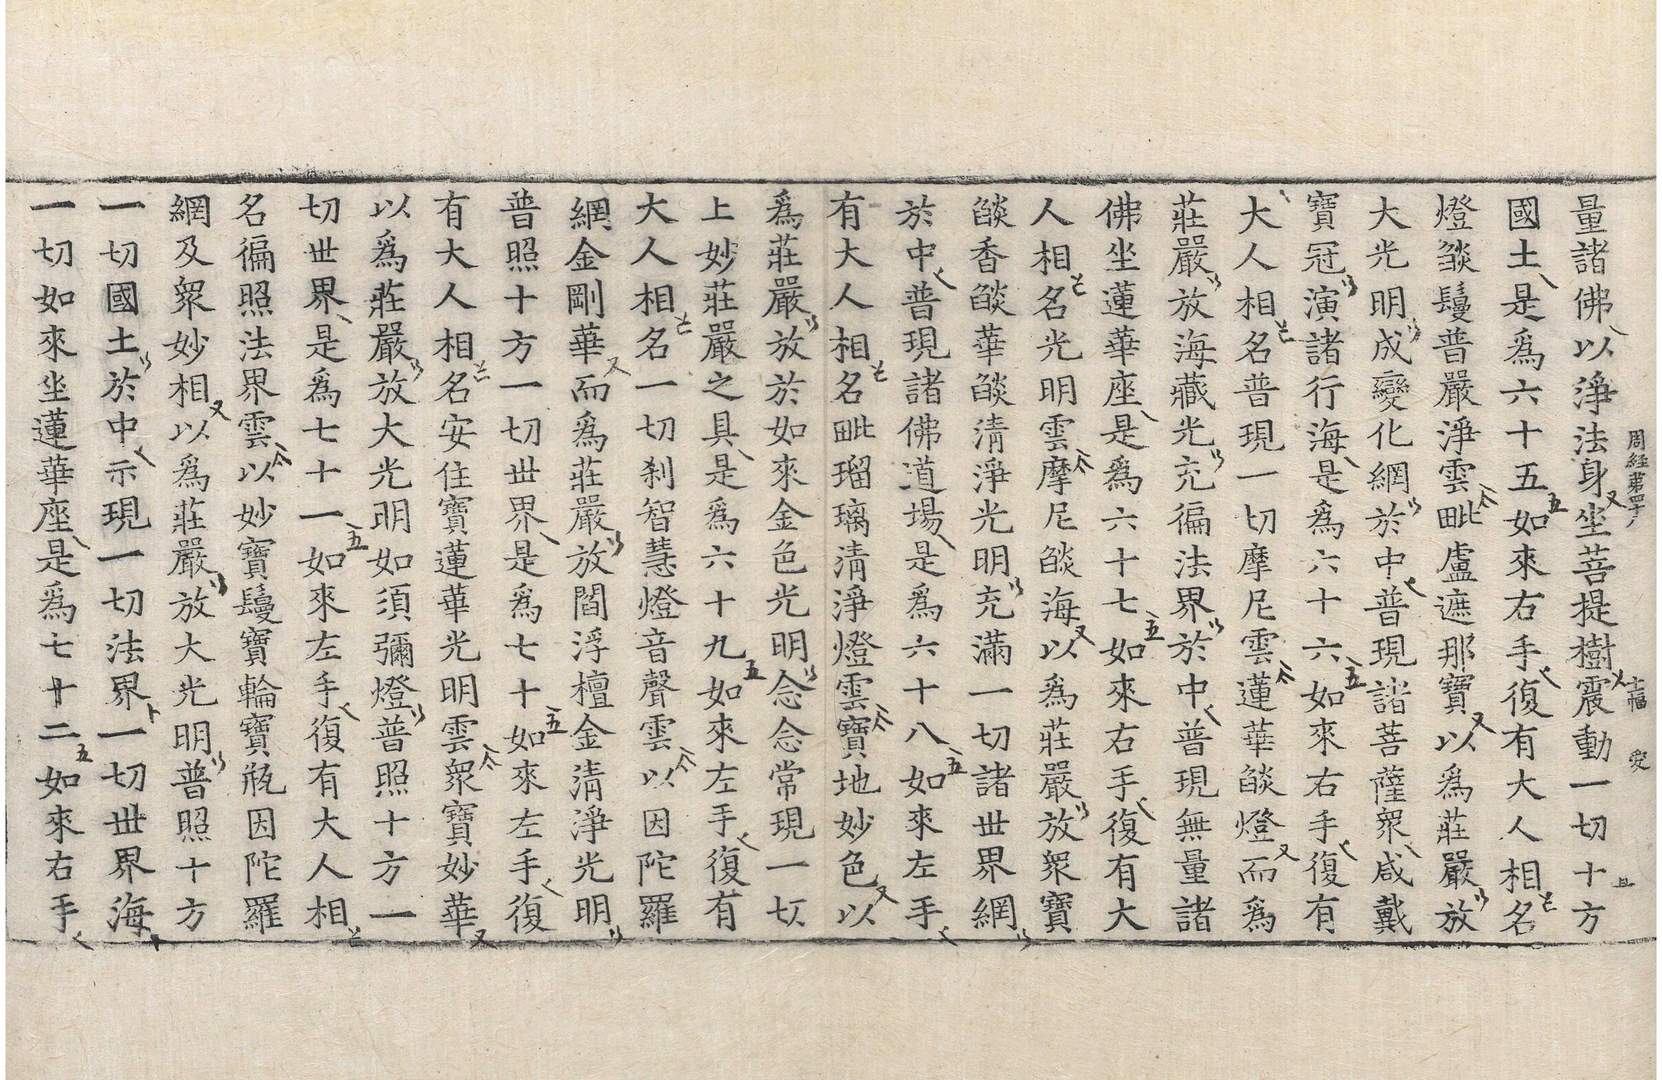 量諸佛以淨法身坐菩提樹震動一切十方
國土是爲六十五如來右手復有大人相名
燈燄鬘普嚴淨雲毗盧遮那寶以爲莊嚴放
大光明成變化網於中普現諸菩薩衆咸戴
寶冠演諸行海是爲六十六如來右手復有
大人相名普現一切摩尼雲蓮華燄燈而爲
莊嚴放海藏光充徧法界於中普現無量諸
佛坐蓮華座是爲六十七如來右手復有大
人相名光明雲摩尼燄海以爲莊嚴放衆寶
燄香燄華燄清淨光明充滿一切諸世界網
於中普現諸佛道場是爲六十八如來左手
有大人相名毗瑠璃清淨燈雲寶地妙色以
爲莊嚴放於如來金色光明念念常現一切
上妙莊嚴之具是爲六十九如來左手復有
大人相名一切刹智慧燈音聲雲以因陀羅
網金剛華而爲莊嚴放閻浮檀金清淨光明
普照十方一切世界是爲七十如來左手復
有大人相名安住寶蓮華光明雲衆寶妙華
以爲莊嚴放大光明如須彌燈普照十方一
切世界是爲七十一如來左手復有大人相
名徧照法界雲以妙寶鬘寶輪寶瓶因陀羅
網及衆妙相以爲莊嚴放大光明普照十方
一切國土於中示現一切法界一切世界海
一切如來坐蓮華座是爲七十二如來右手